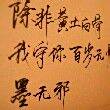 除非黄土白骨
我守你百岁无忧
墨无邪